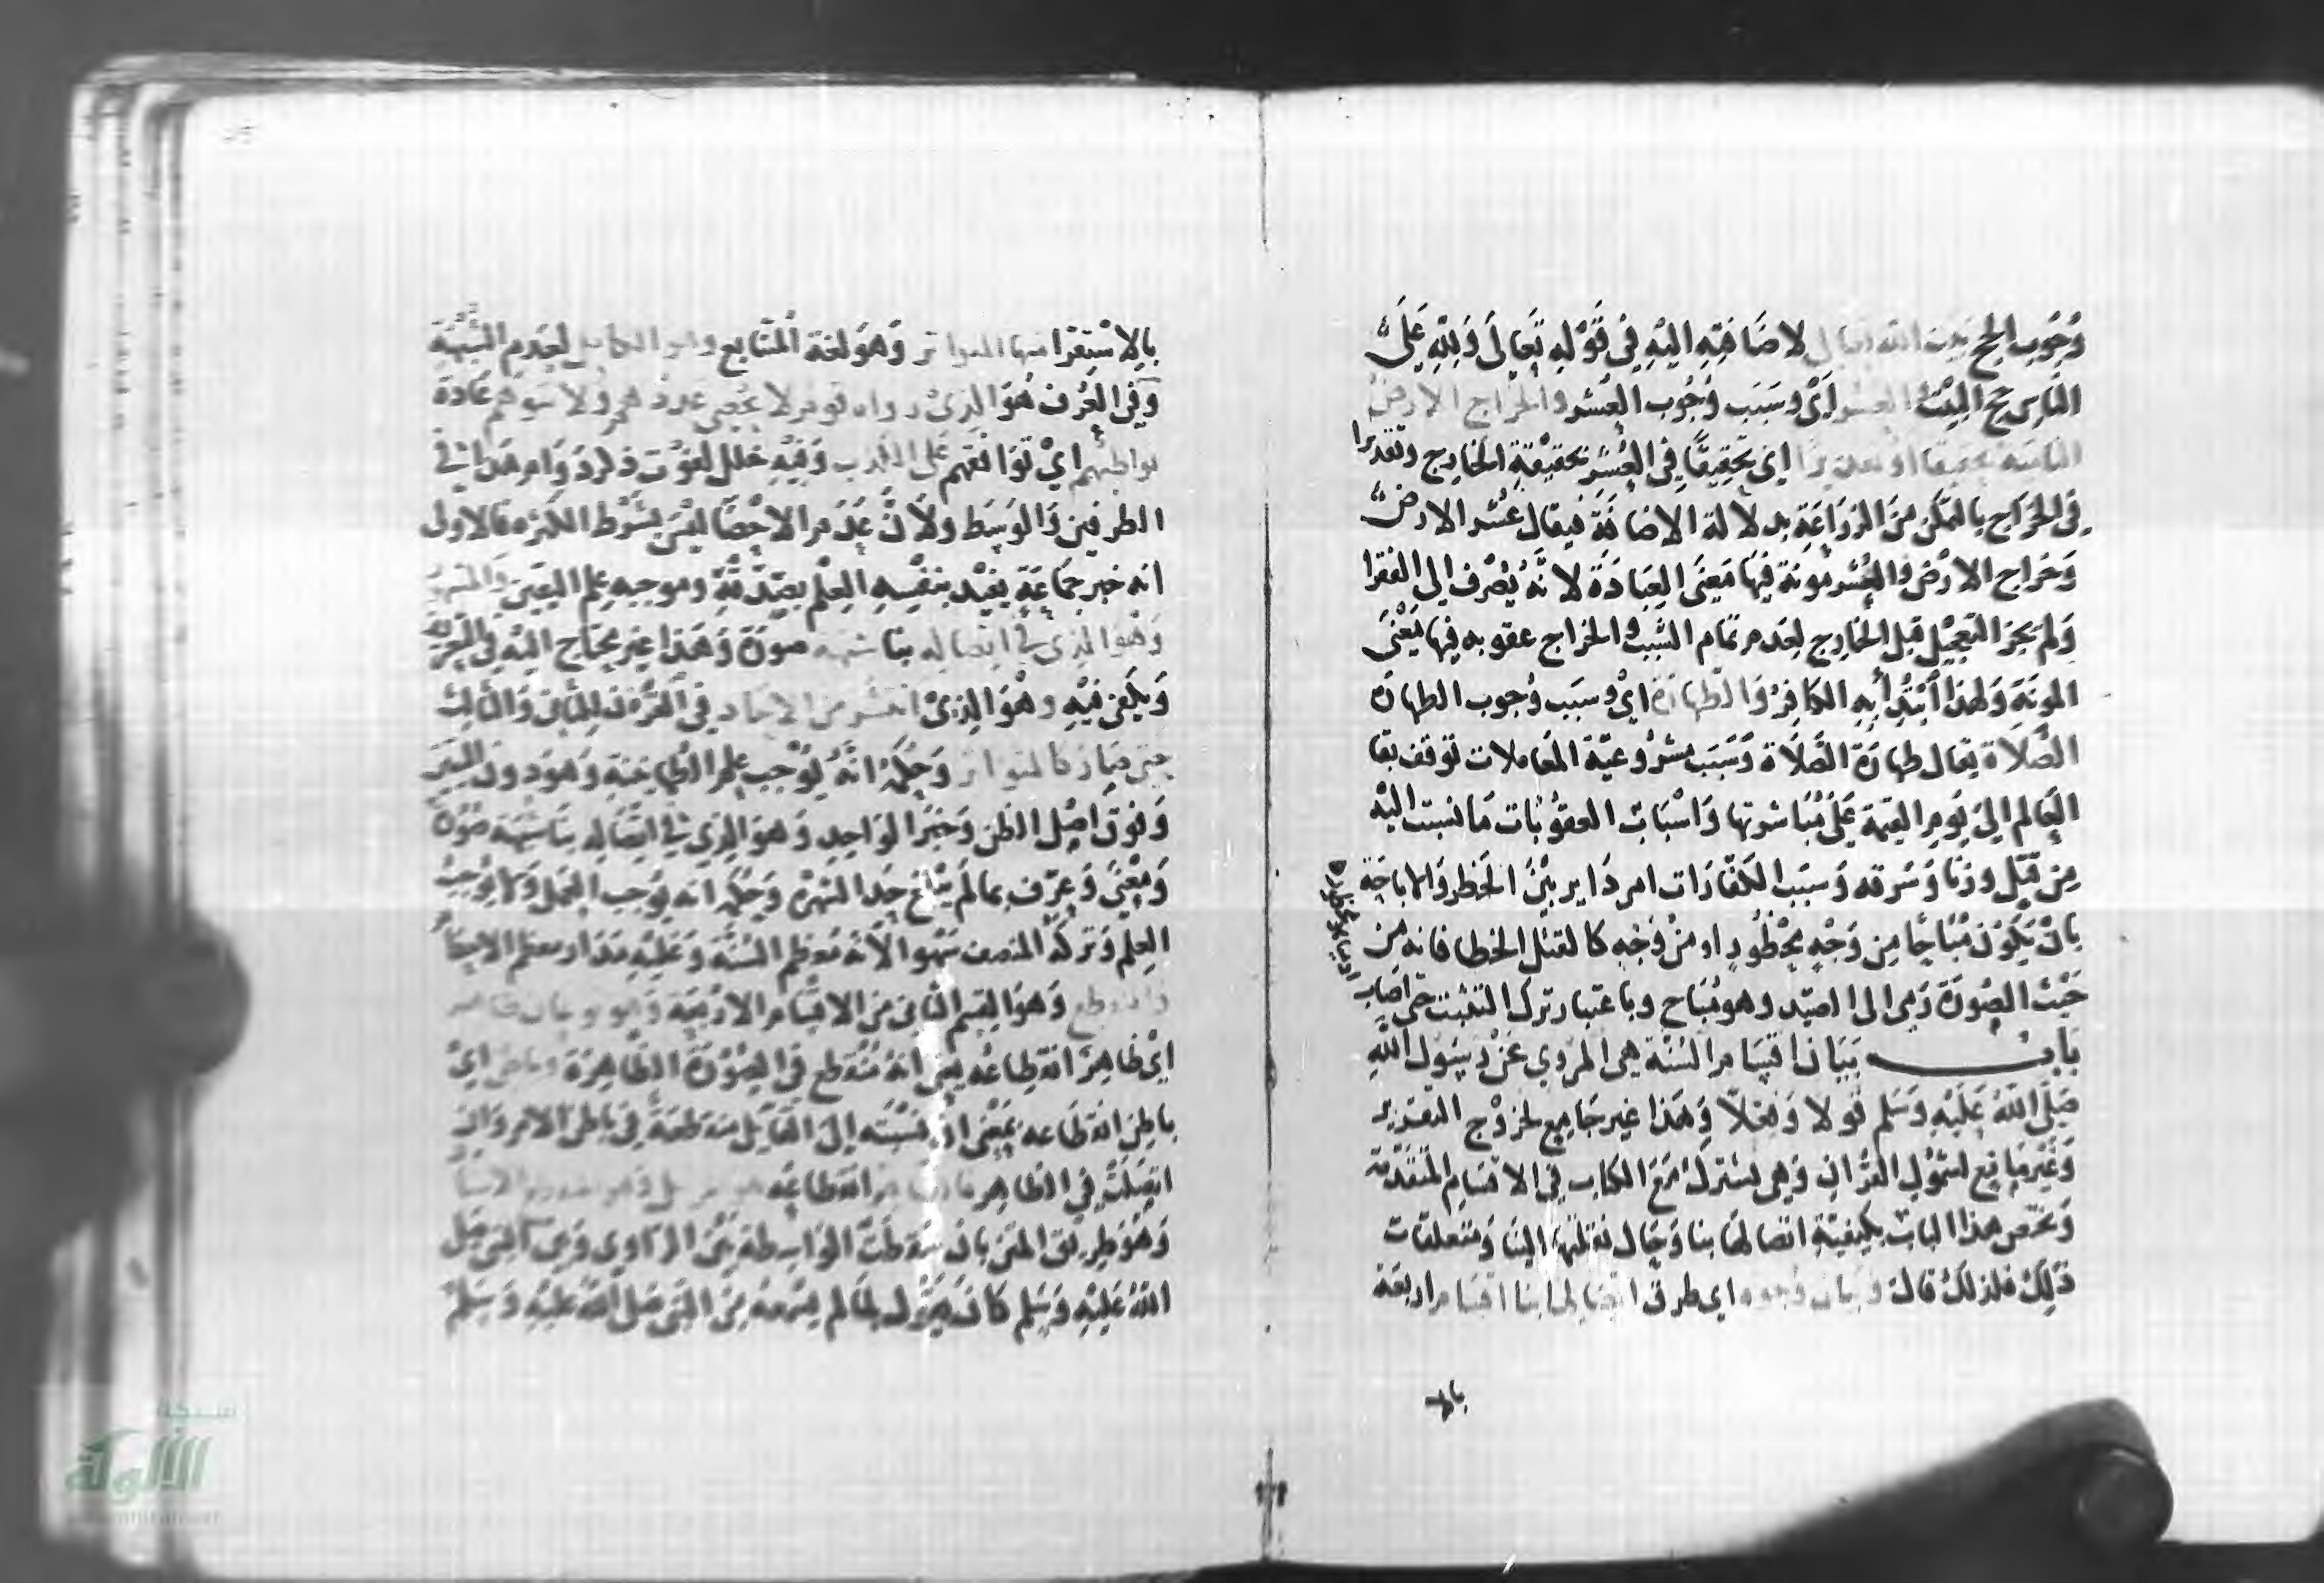 وُجُوب الحج بيت الله تعالى لاضَافتِهِ اليْهِ فِي قَوْلِهِ تَعَالَى وَلِلّهِ عَلَى
النّاسِ حج البَيْتِ والعشر اىْ وسَبَب وُجُوب العُشر والخراج الارض
النامية تحقيقا او تقديرا اى تحْقِيقًا فِي العُشر بحَقِيْقَةِ الخارِج وتقديرا
فِى الخرَاج بالتمكن مِنَ الزرَاعَةِ بدلالة الاضافَة فيقال عُشر الارض
وَخراج الارْض والعُشر مونة فِيهَا مَعْنَى العِبَادَة لانَّهُ يُصْرف الى الفقرا
وَلمْ يَجز التعجيْل قبل الخارج لعَدم تمام السَّبَب والخراج عقوبه فيها مَعْنَى
المونَة وَلهَذا اُبْتُدِأ بِهِ الكافِرُ وَالطّهارَة اىْ وسَبَب وُجوب الطهارَة
الصَّلَاة يقال طهارَة الصَّلَاة وَسَبَب مشرُوعيّة المعَاملات توقف بقا
العَالم اِلىَ يَومِ القيمة عَلَى مُبَاشرتها وَاسْبَاب العقوُبَات مَا نسبت اليْه
مِن قَتْل وزنا وَسَرقه وَسَبَب الكفارَات امر دَاير بيْنَ الحظر وَالاباحَة
بانْ يَكُوْن مُبَاحًا مِن وَجْهٍ محْظُورا من وَجْهِ كالقتل الخطا فانه من
حَيْث الصُورَة رَمى الى الصيّد وهو مُبَاح وباعتبار ترك التثبت حتى اصَاب
ادميا محظور
بَابُ بَيَان اقسَام السُنّة هى المرْوي عَنْ رسَوُل اللّه
صَلّى اللّهُ عَلَيْهِ وَسَلم قولا وَفِعْلاً وَهَذا غير جَامِع لخرُوْج التقرير
وَغَيْر مَانِع لشمُوْل القُرْان وَهى تشتركُ مَعَ الكتاب فِى الاقسَامِ المُتَقَدّمة
وَنخصّ هذا البَاب بكيفيّةِ اتصالها بنا وَحَال نقلتها الينَا وَمتعلقات
ذَلِكَ فلذلكَ قالَ وبيان وجوه اى طرق اتصالها بنا اقسَام اربعَة
بالا
بالاسْتِقْرا منها المتواتر وَهوَ لغة المتّابع وهو الكامل لعَدَمِ الشُبْهَة
وَفِى العُرْف هُوَ الذِىْ رواه قوم لا يحْصى عددهم ولا يتوهّم عَادَة
تواطئهم اىْ تَوَافقهم عَلى الكذب وَفيْهِ خلل لفوْت ذكر دَوَام هَذا فى
الطرفين وَالوسَط ولاَنَّ عَدَم الاحْصَا ليْسَ بشَرْط الكثرَه فالاول
انه خبر جَمَاعَةٍ يفيْد بنفسِهِ العِلْم بصِدْقِهِ وموجبه عِلم اليقِين والمشهو
وَهْوَ الذِى فى اتصاله بنا شبهه صُورَة وَهَذا غير محْتَاج اليْه فى التَّعريْف
وَيكفى فيْهِ وهْوَ الذِىْ انتشر من الاحاد فى القَرْن الثانى وَالثالِث
حتى صَارَ كالمتواتر وَحكمُهُ انّهُ يُوْجب علم الطمانينة وَهوَ دون اليَقين
وَفوق اصْل الظن وَخبَرُ الوَاحِد وَهوَ الذِى فى اتصَالِهِ بنَا شبْهَة صُورَة
وَمَعْنَى وَعرّف بما لَمْ يَبْلغ حَد الشهْرَة وَحُكمه انه يُوجب العَمَل وَلا يُوجب
العِلم وَتركهُ المصنف سَهْوا لاَنَّهُ مُعظم السُنَّة وَعَليْهِ مَدَار معظم الاحكَام
والمنقطع وَهْوَ القِسم الثاني مِنَ الاقسَام الاربَعَة وَهو نوعان ظاهر
اىْ ظاهِرٌ انقِطاعُه يعْنى انّهُ مُنْقطع فى الصُوْرَة الظاهِرَة وباطن اىْ
باطِن انقطَاعه بمَعْنى ان نِسْبَته اِلىَ القَايْل منقطِعَة فى باطن الامر وَاِن
اتصَلتْ فِى الظاهِر فالظاهر انقطاعُه هو المرسل وهو عدم الاسنا
وَهْوَ طريْق المتن بانْ سَقطت الوَاسِطة بَيْن الرّاوِى وَبَيْن النَبى صَلى
اللّهُ عَليْهِ وَسَلم كَانَ يَقُوْل لما لم يَسْمَعهُ مِنَ النَّبى صَلى اللّهُ عَليْهِ وَسَلمْ
شبكة
الألوكة